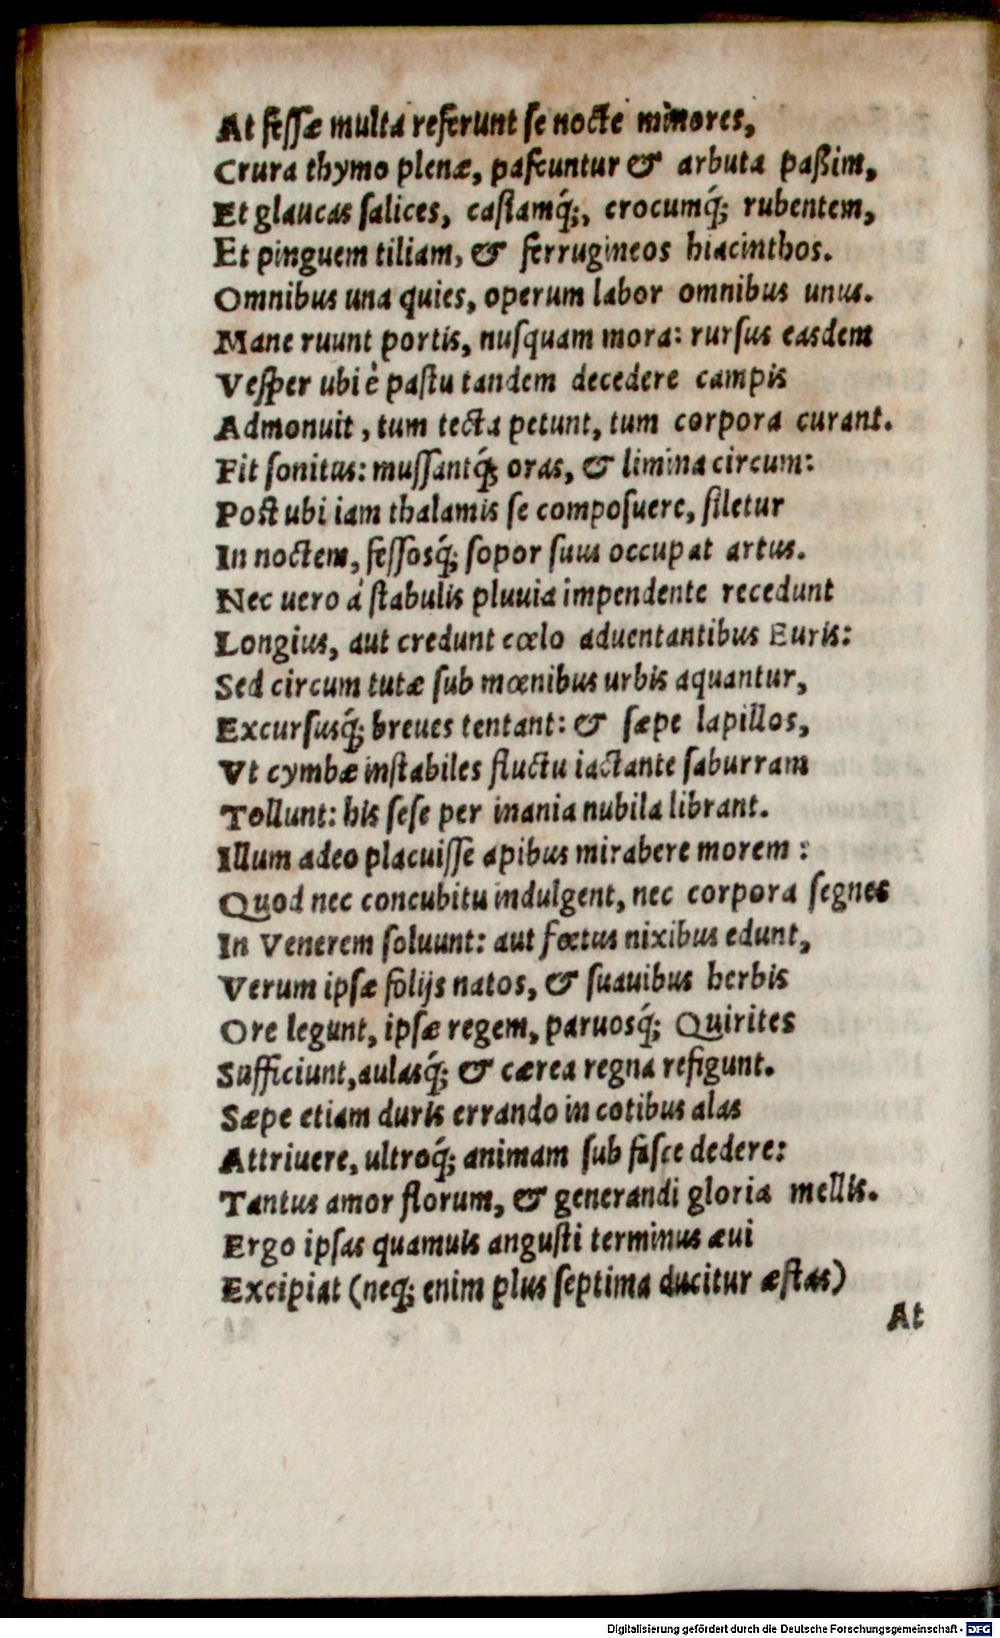 At feſſæ multa referunt ſe nocte minores,
Crura thymo plenæ, paſcuntur & arbuta paßim,
Et glaucas ſalices, caſiamq́;, crocumq́; rubentem,
Et pinguem tiliam, & ferrugineos hiacinthos.
Omnibus una quies, operum labor omnibus unus.
Mane ruunt portis, nuſquam mora: rurſus easdem
Veſper ubi è paſtu tandem decedere campis
Admonuit, tum tecta petunt, tum corpora curant.
Fit ſonitus: muſſantq́; oras, & limina circum:
Poſt ubi iam thalamis ſe compoſuere, ſiletur
In noctem, feſſosq́; ſopor ſuus occupat artus.
Nec uero á ſtabulis pluuia impendente recedunt
Longius, aut credunt cœlo aduentantibus Euris:
Sed circum tutæ ſub mœnibus urbis aquantur,
Excurſusq́; breues tentant: & ſæpe lapillos,
Vt cymbæ inſtabiles fluctu iactante ſaburram
Tollunt: his ſeſe per inania nubila librant.
Illum adeo placuiſſe apibus mirabere morem:
Quod nec concubitu indulgent, nec corpora ſegnes
In Venerem ſoluunt: aut fœtus nixibus edunt,
Verum ipſæ folijs natos, & ſuauibus herbis
Ore legunt, ipſæ regem, paruosq́; Quirites
Sufficiunt, aulasq́; & cærea regna refigunt.
Sæpe etiam duris errando in cotibus alas
Attriuere, ultroq́; animam ſub faſce dedere:
Tantus amor florum, & generandi gloria mellis.
Ergo ipſas quamuis anguſti terminus æui
Excipiat (neq; enim plus ſeptima ducitur æſtas)
At
Digitalisierung gefördert durch die Deutsche Forschungsgemeinschaft - DFG